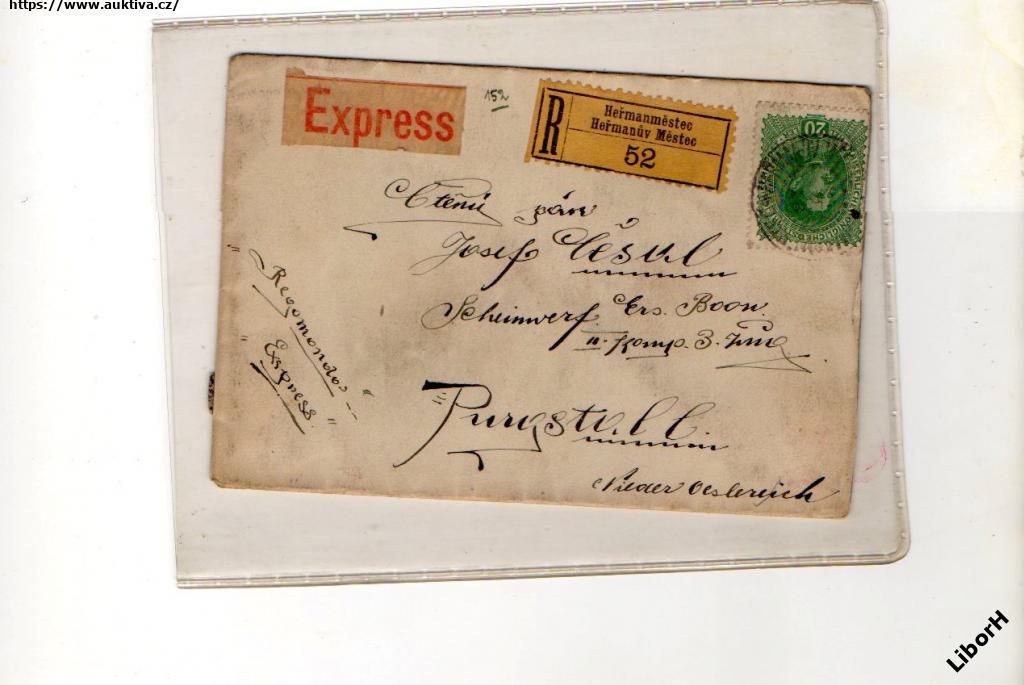 https://www.auktiva.cz/
Express
152
R
Heřmanměstec
Heřmanův Městec
52
20
Ctěný pán
Josef Češul
Scheinwerf. Ers. Baon.
II. Komp. 3. Zug
Purgstall
Nieder Oesterreich
"Rekomondo"
"Express."
LiborH